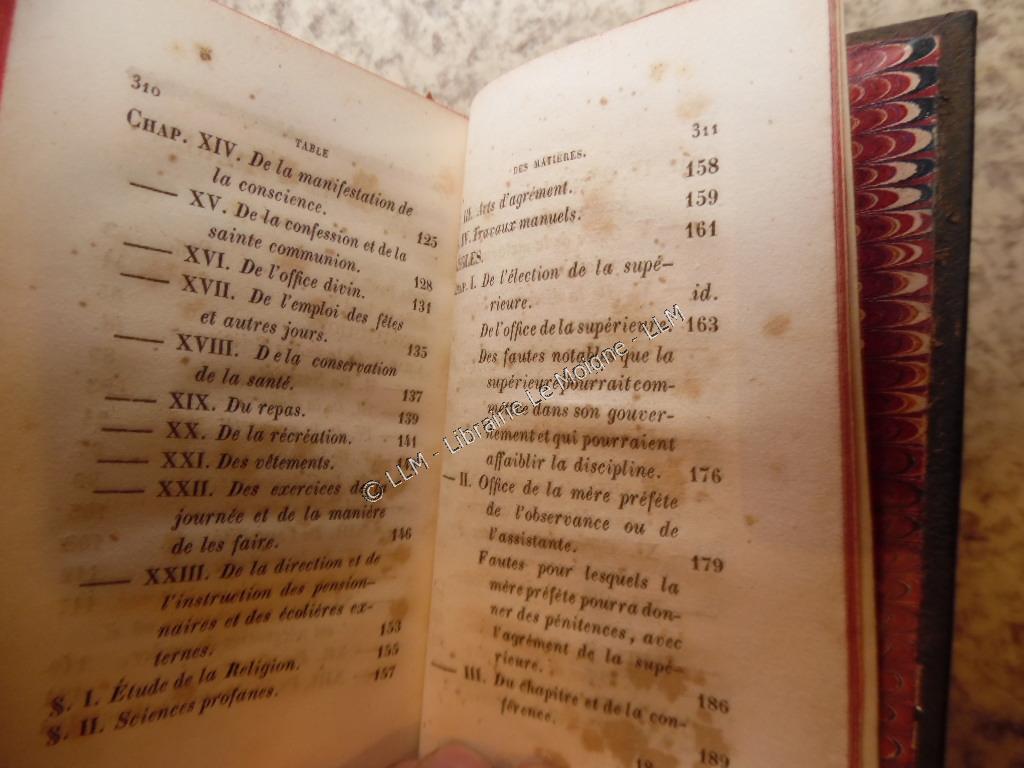 310
TABLE
CHAP. XIV. De la manifestation de
la conscience. 125
—— XV. De la confession et de la
sainte communion. 128
—— XVI. De l'office divin. 131
—— XVII. De l'emploi des fêtes
et autres jours. 135
—— XVIII. De la conservation
de la santé. 137
—— XIX. Du repas. 139
—— XX. De la récréation. 141
—— XXI. Des vêtements.
—— XXII. Des exercices de la
journée et de la manière
de les faire. 146
—— XXIII. De la direction et de
l'instruction des pension-
naires et des écolières ex-
ternes. 153
§. I. Étude de la Religion. 155
§. II. Sciences profanes. 157
311
DES MATIÈRES.
III. Arts d'agrément. 158
IV. Travaux manuels. 159
GLES. 161
I. De l'élection de la supé-
rieure. id.
De l'office de la supérieure 163
Des fautes notables que la
supérieure pourrait com-
mettre dans son gouver-
nement et qui pourraient
affaiblir la discipline. 176
— II. Office de la mère préfète
de l'observance ou de
l'assistante. 179
Fautes pour lesquels la
mère préfète pourra don-
ner des pénitences, avec
l'agrément de la supé-
rieure. 186
— III. Du chapitre et de la con-
férence. 189
18
© LLM - Librairie Le Moigne - LLM